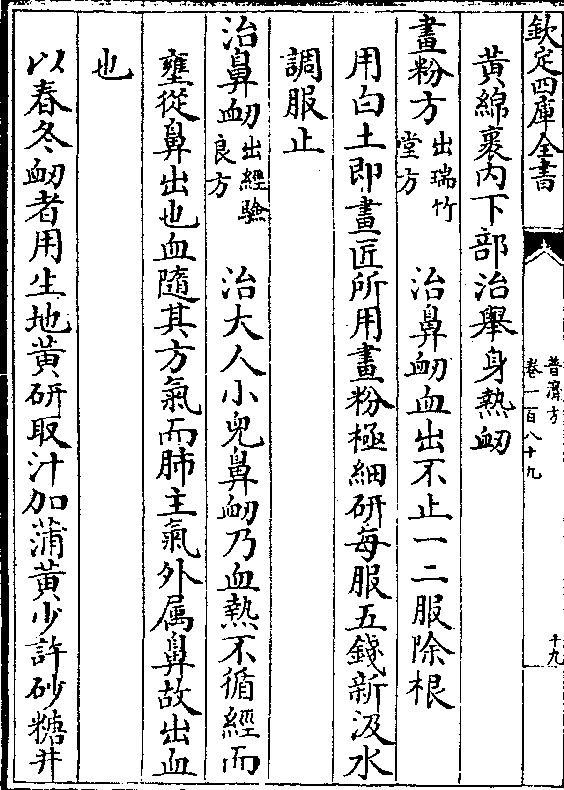 欽定四庫全書
普濟方
卷一百八十九
十九
黃綿裹内下部治舉身熱衂
畫粉方 出瑞竹堂方 治鼻衂血出不止一二服除根
用白土即畫匠所用畫粉極細研每服五錢新汲水
調服止
治鼻衂 出經驗良方 治大人小兒鼻衂乃血熱不循經而
壅從鼻出也血隨其方氣而肺主氣外属鼻故出血
也
以春冬衂者用生地黄研取汁加蒲黄少許砂糖井